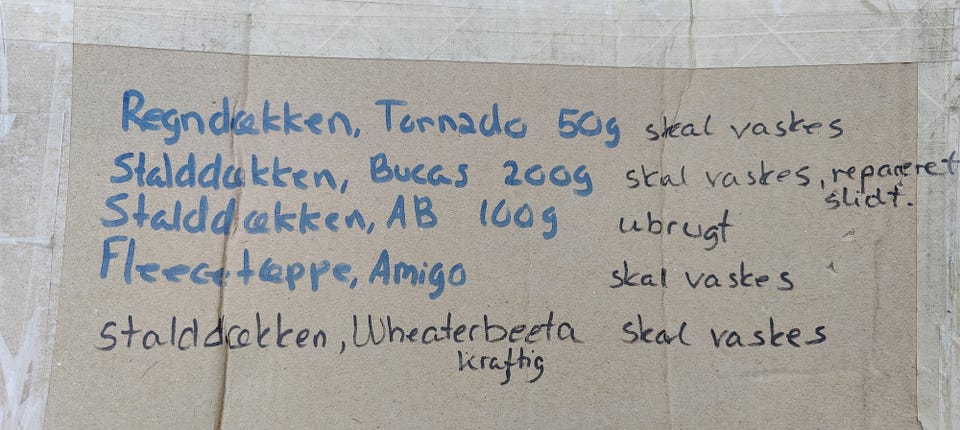 Regndækken, Tornado 50g skal vaskes
Stalddækken, Bucas 200g skal vaskes, repareret
slidt.
Stalddækken, AB 100g ubrugt
Fleecetæppe, Amigo skal vaskes
stalddækken, Wheaterbeeta skal vaskes
kraftig